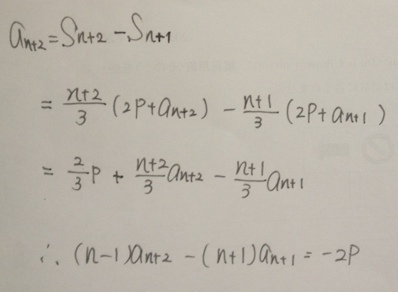 aₙ₊₂ = Sₙ₊₂ − Sₙ₊₁
= \frac{n+2}{3} (2P + aₙ₊₂) − \frac{n+1}{3} (2P + aₙ₊₁)
= \frac{2}{3} P + \frac{n+2}{3} aₙ₊₂ − \frac{n+1}{3} aₙ₊₁
∴ (n−1)aₙ₊₂ − (n+1)aₙ₊₁ = −2P